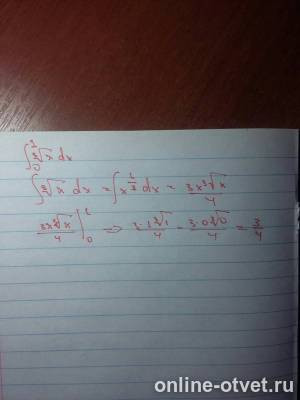 ∫₀¹ ∛x dx
∫ ∛x dx = ∫ x^(1/3) dx = 3x ∛x / 4
3x ∛x / 4 |₀¹ => 3·1 ∛1 / 4 - 3·0 ∛0 / 4 = 3/4
online-otvet.ru